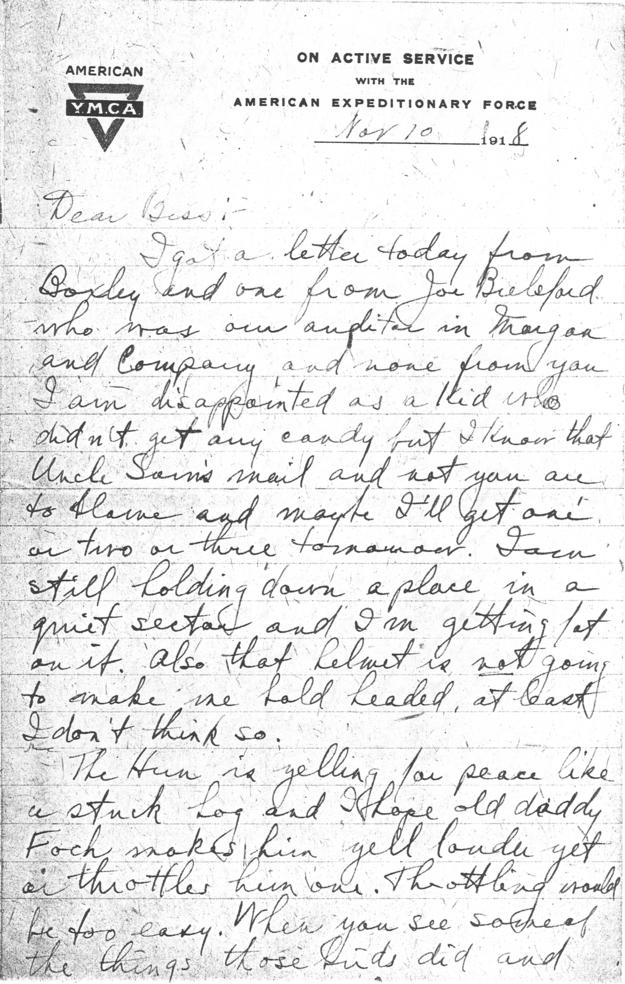 AMERICAN
Y.M.C.A.
ON ACTIVE SERVICE
WITH THE
AMERICAN EXPEDITIONARY FORCE
Nov 10 1918
Dear Bess:-
I got a letter today from
Boxley and one from Joe
who was our auditor in Morgan
and Company and none from you
I am disappointed as a kid who
didn't get any candy but I know that
Uncle Sam's mail and not you are
to blame and maybe I'll get one
or two or three tomorrow. I am
still holding down a place in a
quiet sector and I'm getting fat
on it. Also that helmet is not going
to make me bald headed, at least
I don't think so.
The Hun is yelling for peace like
a stuck hog and I hope old daddy
Foch makes him yell louder yet
or throttles him one. Throttling would
be too easy. When you see some of
the things those birds did and